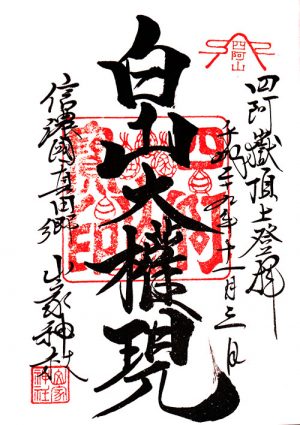 四阿山
四阿嶽頂上登拝
平成二十九年十一月三日
白山大權現
信濃國真田郷 山家神社
山家神社